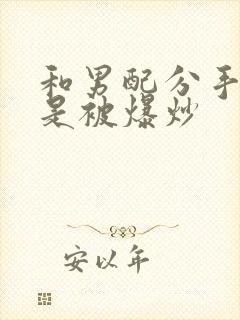 和男配分手
是被爆炒
安以年